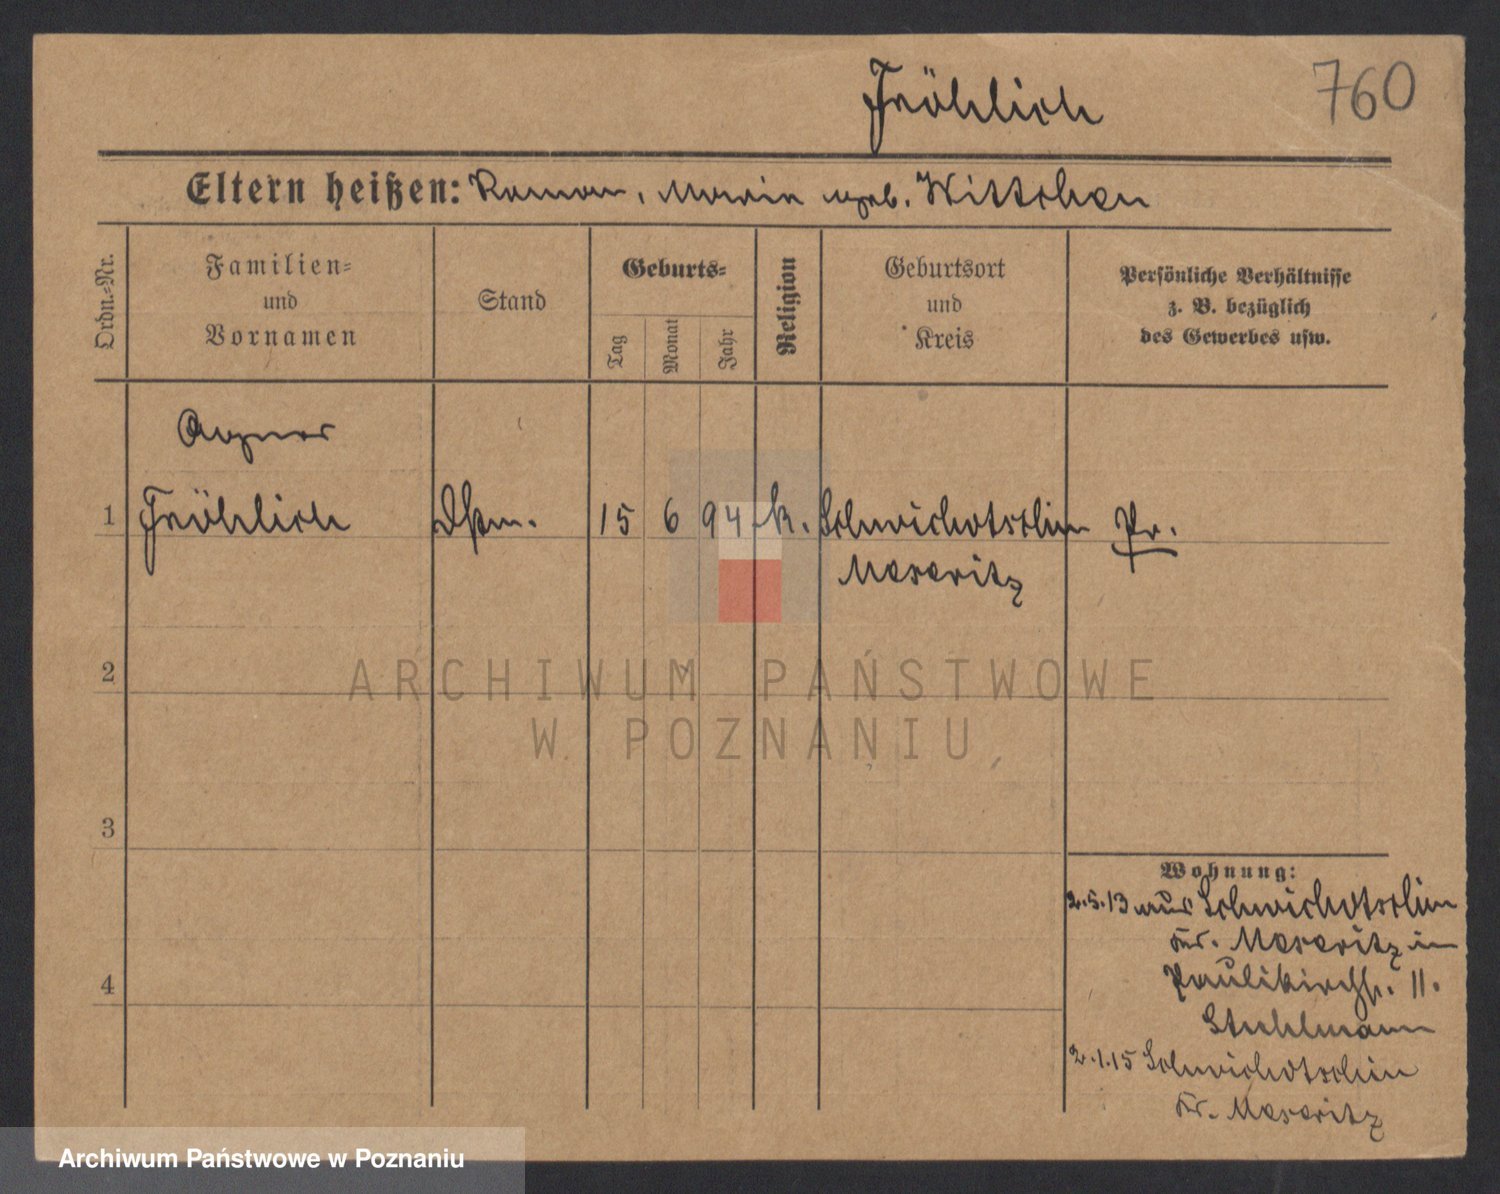 Fröhlich
760
Eltern heißen: Roman, Maria geb. Wittchen
Ordn.-Nr.
Familien-
und
Vornamen
Stand
Geburts-
Tag
Monat
Jahr
Religion
Geburtsort
und
Kreis
Persönliche Verhältnisse
z. B. bezüglich
des Gewerbes usw.
Agnes
1 Fröhlich Dstm. 15 6 94 k. Schwichotschin Pr.
Meseritz
2
3
4
ARCHIWUM PAŃSTWOWE
W POZNANIU
Wohnung:
2.5.13 aus Schwichotschin
Kr. Meseritz in
Paulikirchstr. 11.
Stuhlmann
2.1.15 Schwichotschin
Kr. Meseritz
Archiwum Państwowe w Poznaniu